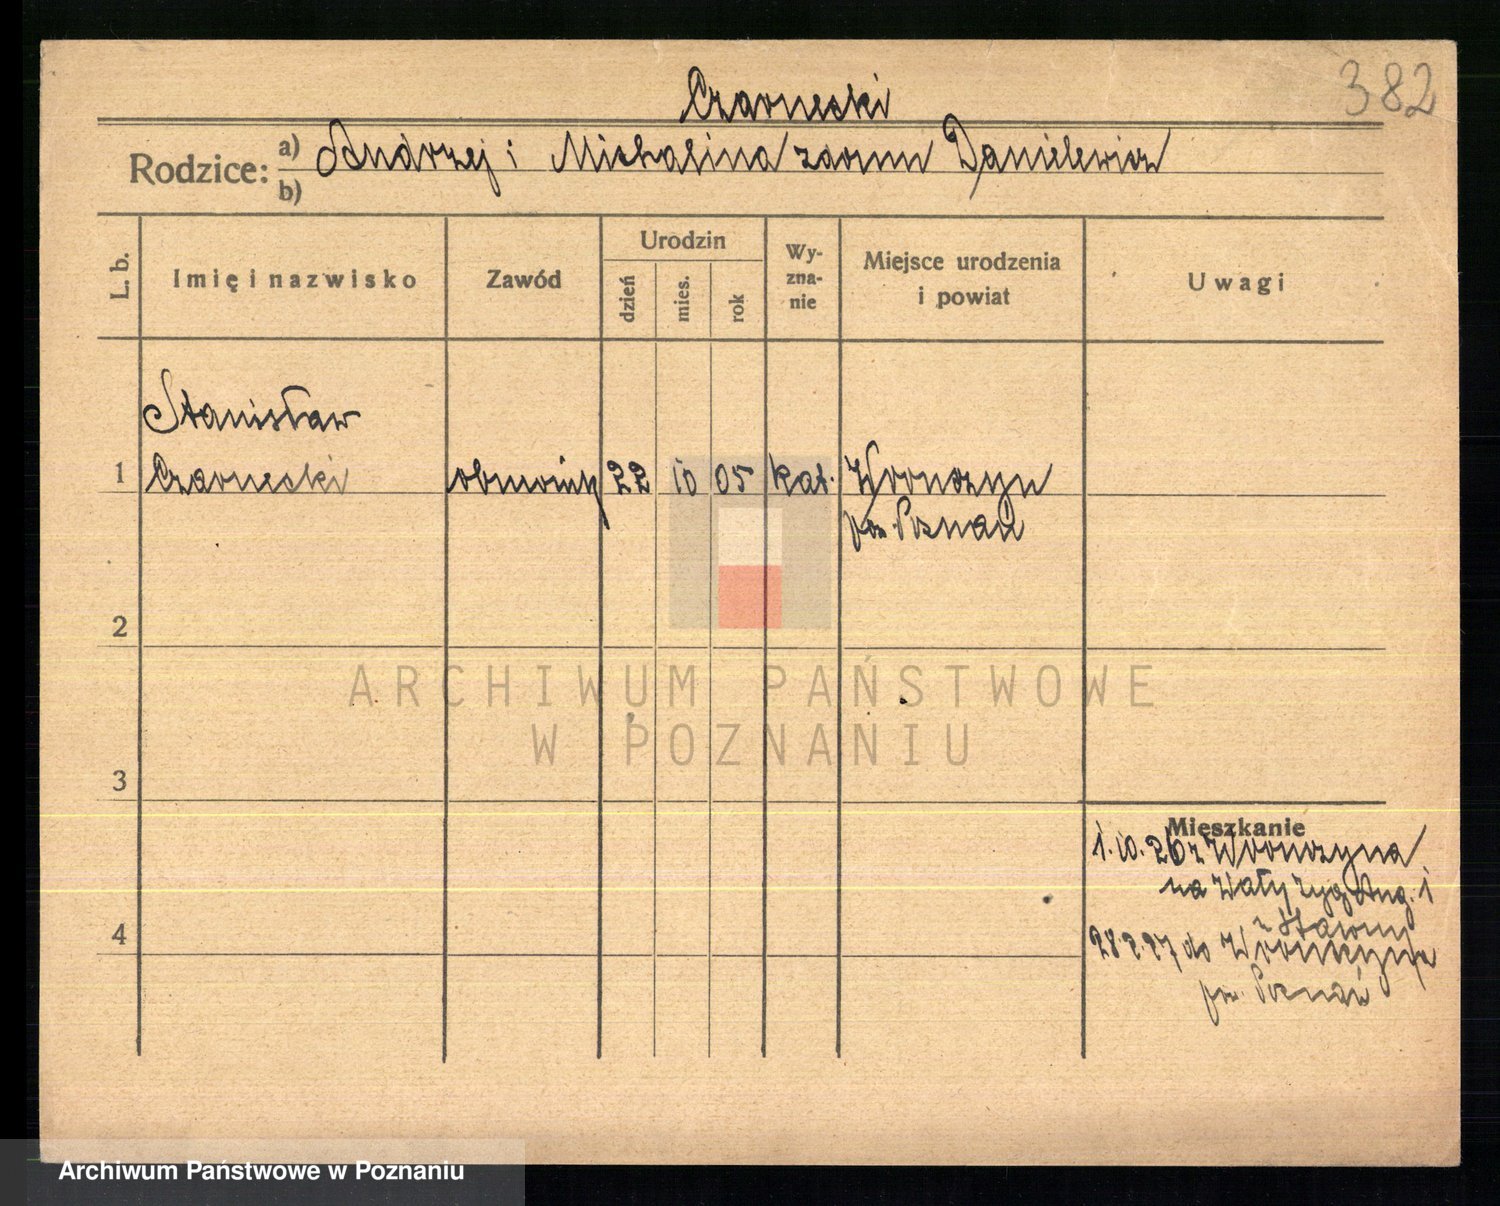 382
Czarnecki
Rodzice: a) Andrzej i Michalina z domu Danielewicz
b)
L. b.
Imię i nazwisko
Zawód
Urodzin
dzień
mies.
rok
Wy-
zna-
nie
Miejsce urodzenia
i powiat
Uwagi
Stanisław
1 Czarnecki 22 10 05 kat. Wronczyn
pow. Poznań
2
ARCHIWUM PAŃSTWOWE
W POZNANIU
3
Mieszkanie
1.10.26 z Wronczyna
na Wały Zyg. Aug. 1
4
28.2.27 do Wronczyna
pow. Poznań
Archiwum Państwowe w Poznaniu